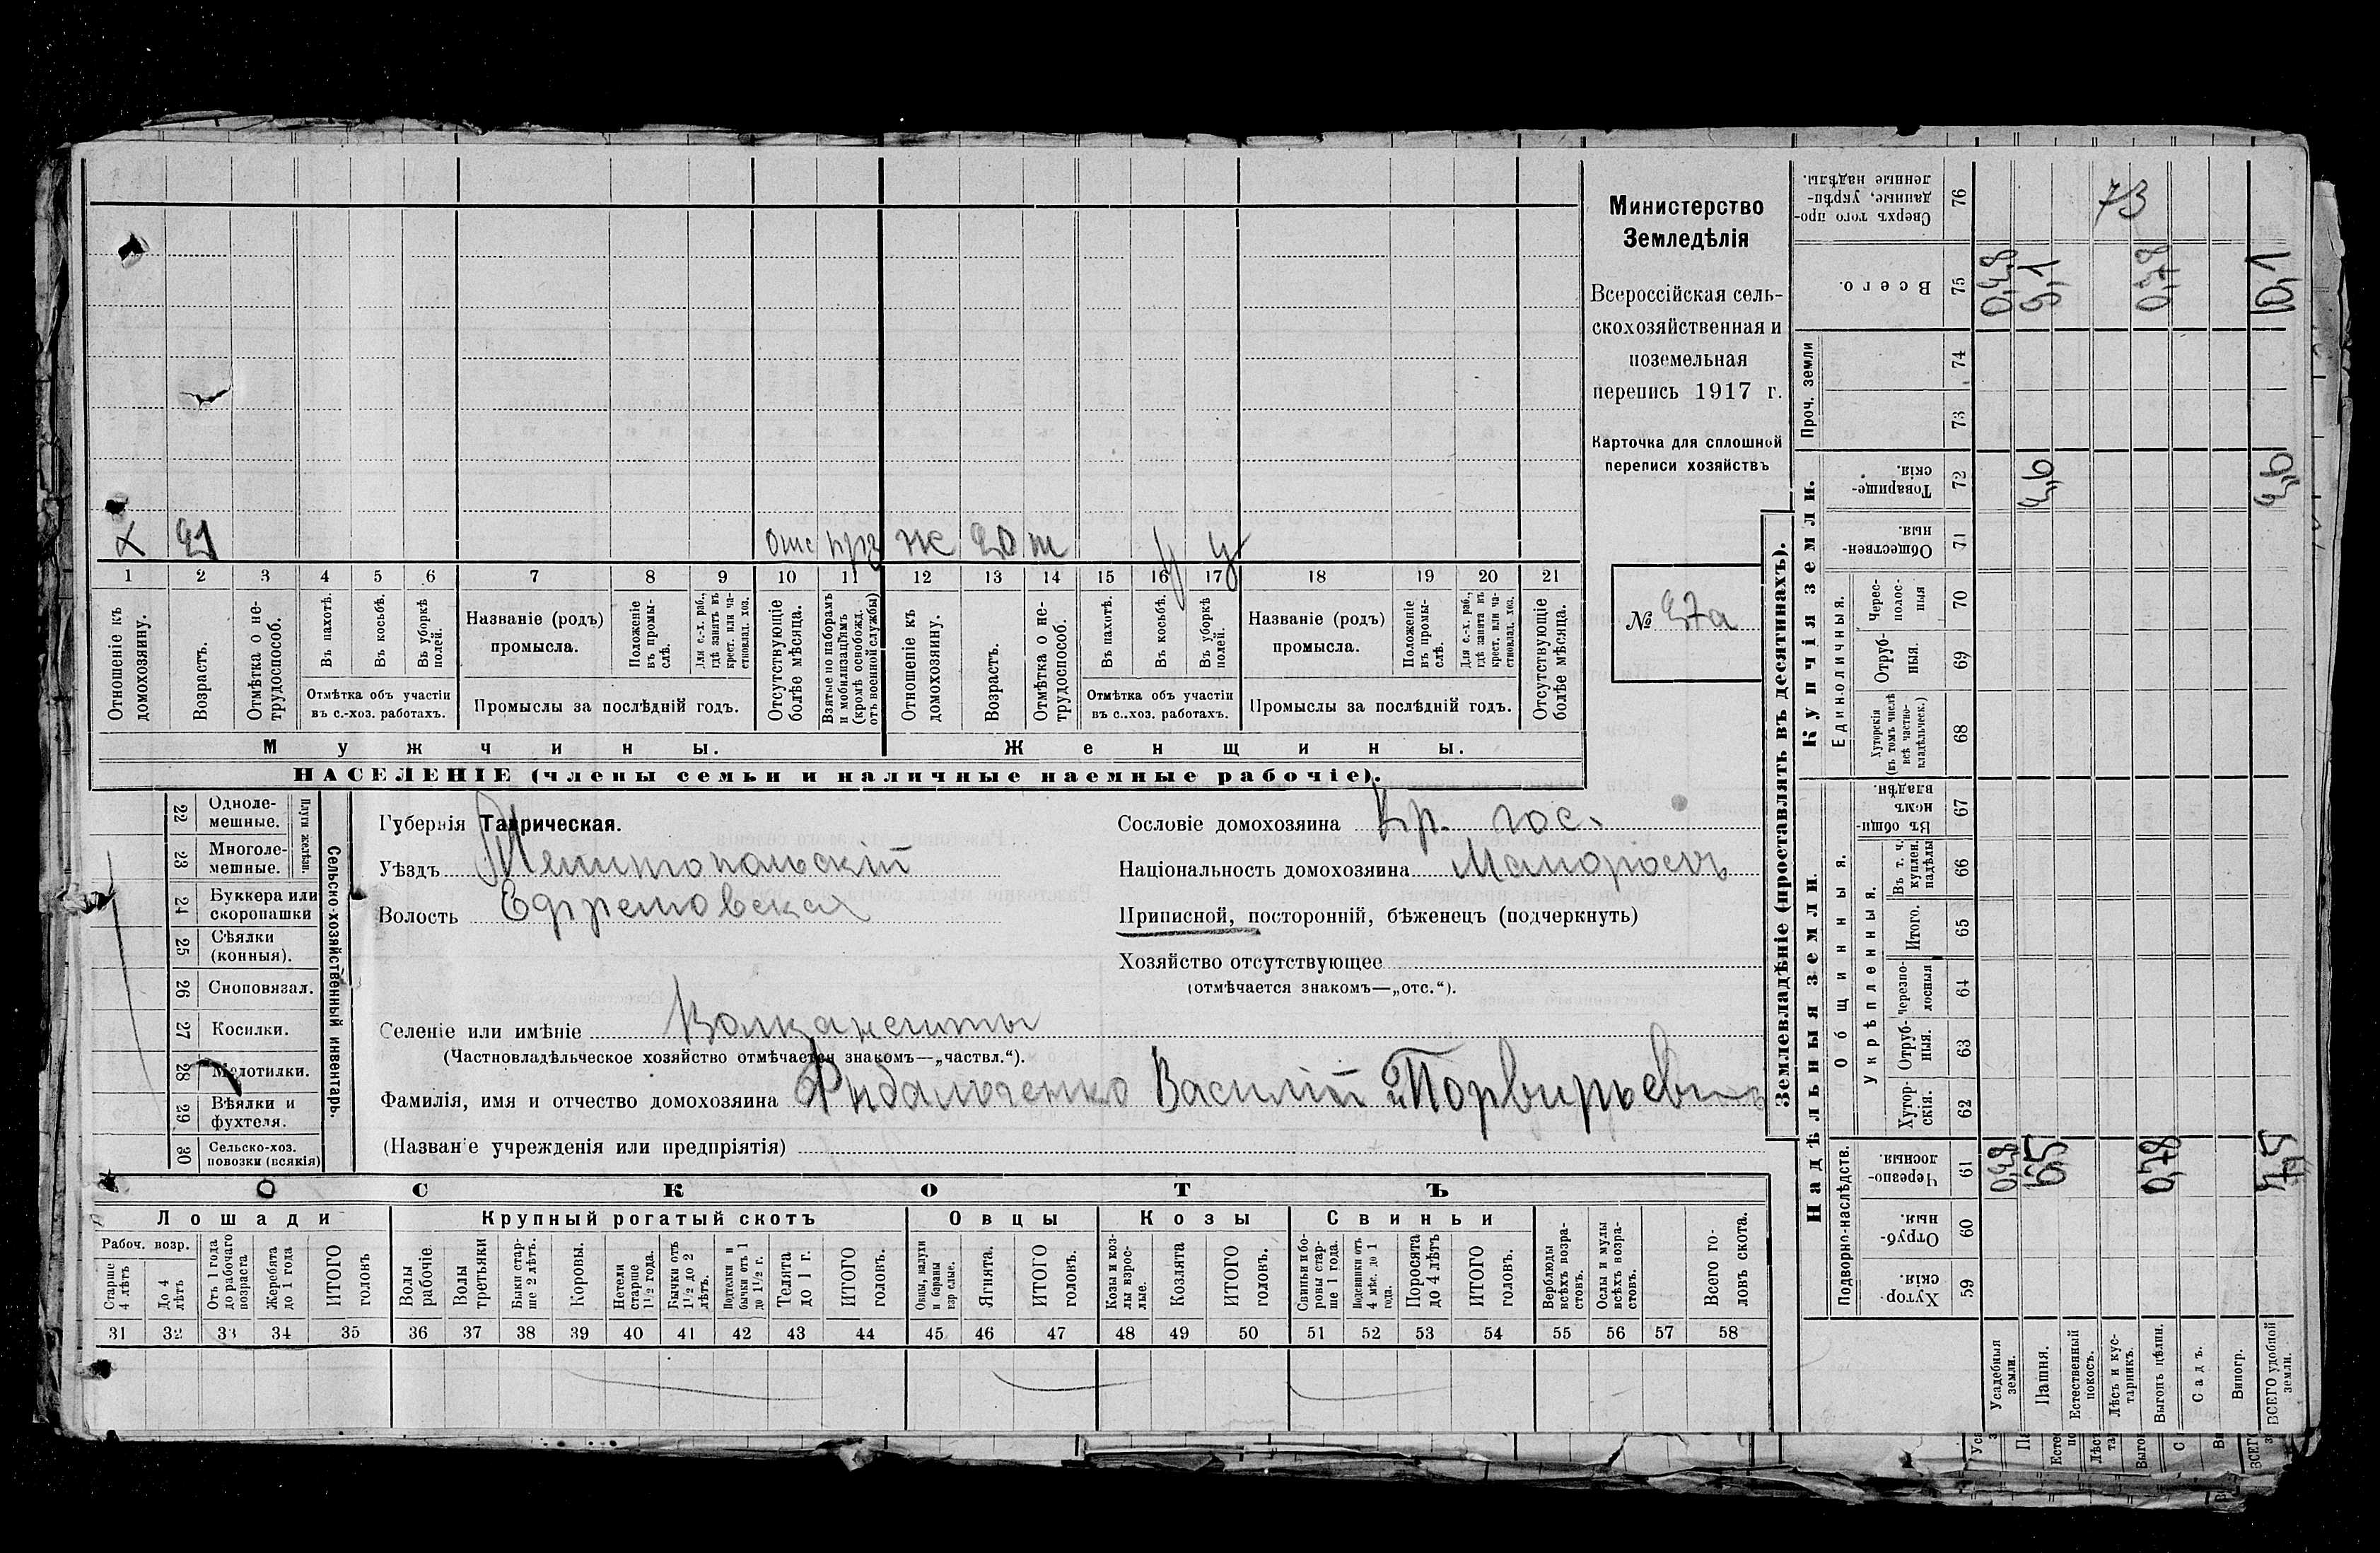 Министерство
Земледѣлія
Всероссійская сель-
скохозяйственная и
поземельная
перепись 1917 г.
Карточка для сплошной
переписи хозяйствъ
№ 27а
х 21 отс прз ж 20 т у у
1 2 3 4 5 6 7 8 9 10 11 12 13 14 15 16 17 18 19 20 21
Отношеніе къ домохозяину.
Возрастъ.
Отмѣтка о не-трудоспособ.
Въ пахотѣ.
Въ косьбѣ.
Въ уборкѣ полей.
Отмѣтка объ участіи
въ с.-хоз. работахъ.
Названіе (родъ)
промысла.
Положеніе въ промы-слѣ.
Для с.-х. раб., гдѣ занятъ въ крест. или ча-стновлад. хоз.
Промыслы за послѣдній годъ.
Отсутствующіе болѣе мѣсяца.
Взятые по наборамъ и мобилизаціямъ (кромѣ освобожд. отъ военной службы)
Отношеніе къ домохозяину.
Возрастъ.
Отмѣтка о не-трудоспособ.
Въ пахотѣ.
Въ косьбѣ.
Въ уборкѣ полей.
Отмѣтка объ участіи
въ с.-хоз. работахъ.
Названіе (родъ)
промысла.
Положеніе въ промы-слѣ.
Для с.-х. раб., гдѣ занята въ крест. или ча-стновлад. хоз.
Промыслы за послѣдній годъ.
Отсутствующіе болѣе мѣсяца.
Мужчины. Женщины.
НАСЕЛЕНІЕ (члены семьи и наличные наемные рабочіе).
22 Одноле-мешные.
23 Многоле-мешные.
Плуги желѣзн.
24 Буккера или скоропашки
25 Сѣялки (конныя).
26 Сноповязал.
27 Косилки.
28 Молотилки.
29 Вѣялки и фухтеля.
30 Сельско-хоз. повозки (всякія)
Сельско-хозяйственный инвентарь.
Губернія Таврическая.
Уѣздъ Мелитопольскій
Волость Ефремовская
Селеніе или имѣніе Волканешты
(Частновладѣльческое хозяйство отмѣчается знакомъ—„частвл.“).
Фамилія, имя и отчество домохозяина Рыбальченко Василій Порвирьевичъ
(Названіе учрежденія или предпріятія)
Сословіе домохозяина Кр. гос.
Національность домохозяина Малороссъ
Приписной, посторонній, бѣженецъ (подчеркнуть)
Хозяйство отсутствующее
(отмѣчается знакомъ—„отс.“).
СКОТЪ
Лошади Крупный рогатый скотъ Овцы Козы Свиньи
Рабоч. возр.
Старше 4 лѣтъ
До 4 лѣтъ
Отъ 1 года до рабочаго возраста
Жеребята до 1 года
ИТОГО головъ
Волы рабочіе.
Волы третьяки
Быки стар-ше 2 лѣтъ.
Коровы.
Нетели старше 1 1/2 года.
Бычки отъ 1 1/2 до 2 лѣтъ.
Подтелки и бычки отъ 1 до 1 1/2 г.
Телята до 1 г.
ИТОГО головъ.
Овцы, валухи и бараны взрослые.
Ягнята.
ИТОГО головъ.
Козы и коз-лы взрос-лые.
Козлята
ИТОГО головъ.
Свиньи и бо-ровы стар-ше 1 года.
Подсвинки отъ 4 мѣс. до 1 года.
Поросята до 4 лѣтъ
ИТОГО головъ.
Верблюды всѣхъ возра-стовъ.
Ослы и мулы всѣхъ возра-стовъ.
Всего го-ловъ скота.
31 32 33 34 35 36 37 38 39 40 41 42 43 44 45 46 47 48 49 50 51 52 53 54 55 56 57 58
Землевладѣніе (проставлять въ десятинахъ).
Надѣльныя земли.
Купчія земли.
Подворно-наслѣдств.
Общинныя.
Укрѣпленныя.
Единоличныя.
Проч. земли
Сверхъ того про-данные, укрѣп-ленные надѣлы. 76
Всего. 75
74
73
Товарище-скія. 72
Обществен-ныя. 71
Черес-полос-ныя 70
Отруб-ныя. 69
Хуторскія (въ томъ числѣ всѣ частно-владѣльческ.) 68
Въ общин-номъ владѣн. 67
Въ т. ч. куплен. надѣлы 66
Итого. 65
Черезпо-лосныя 64
Отруб-ныя. 63
Хутор-скія. 62
Черезпо-лосныя. 61
Отруб-ныя. 60
Хутор-скія. 59
Усадебныя земли. 0,48 0,48
Пашня. 6,5 2,6 9,1
Естественный покосъ.
Лѣсъ и кус-тарникъ. 73
Выгонъ цѣлин. 0,78 0,78
Садъ.
Виногр.
ВСЕГО удобной земли. 7,5 2,6 10,1